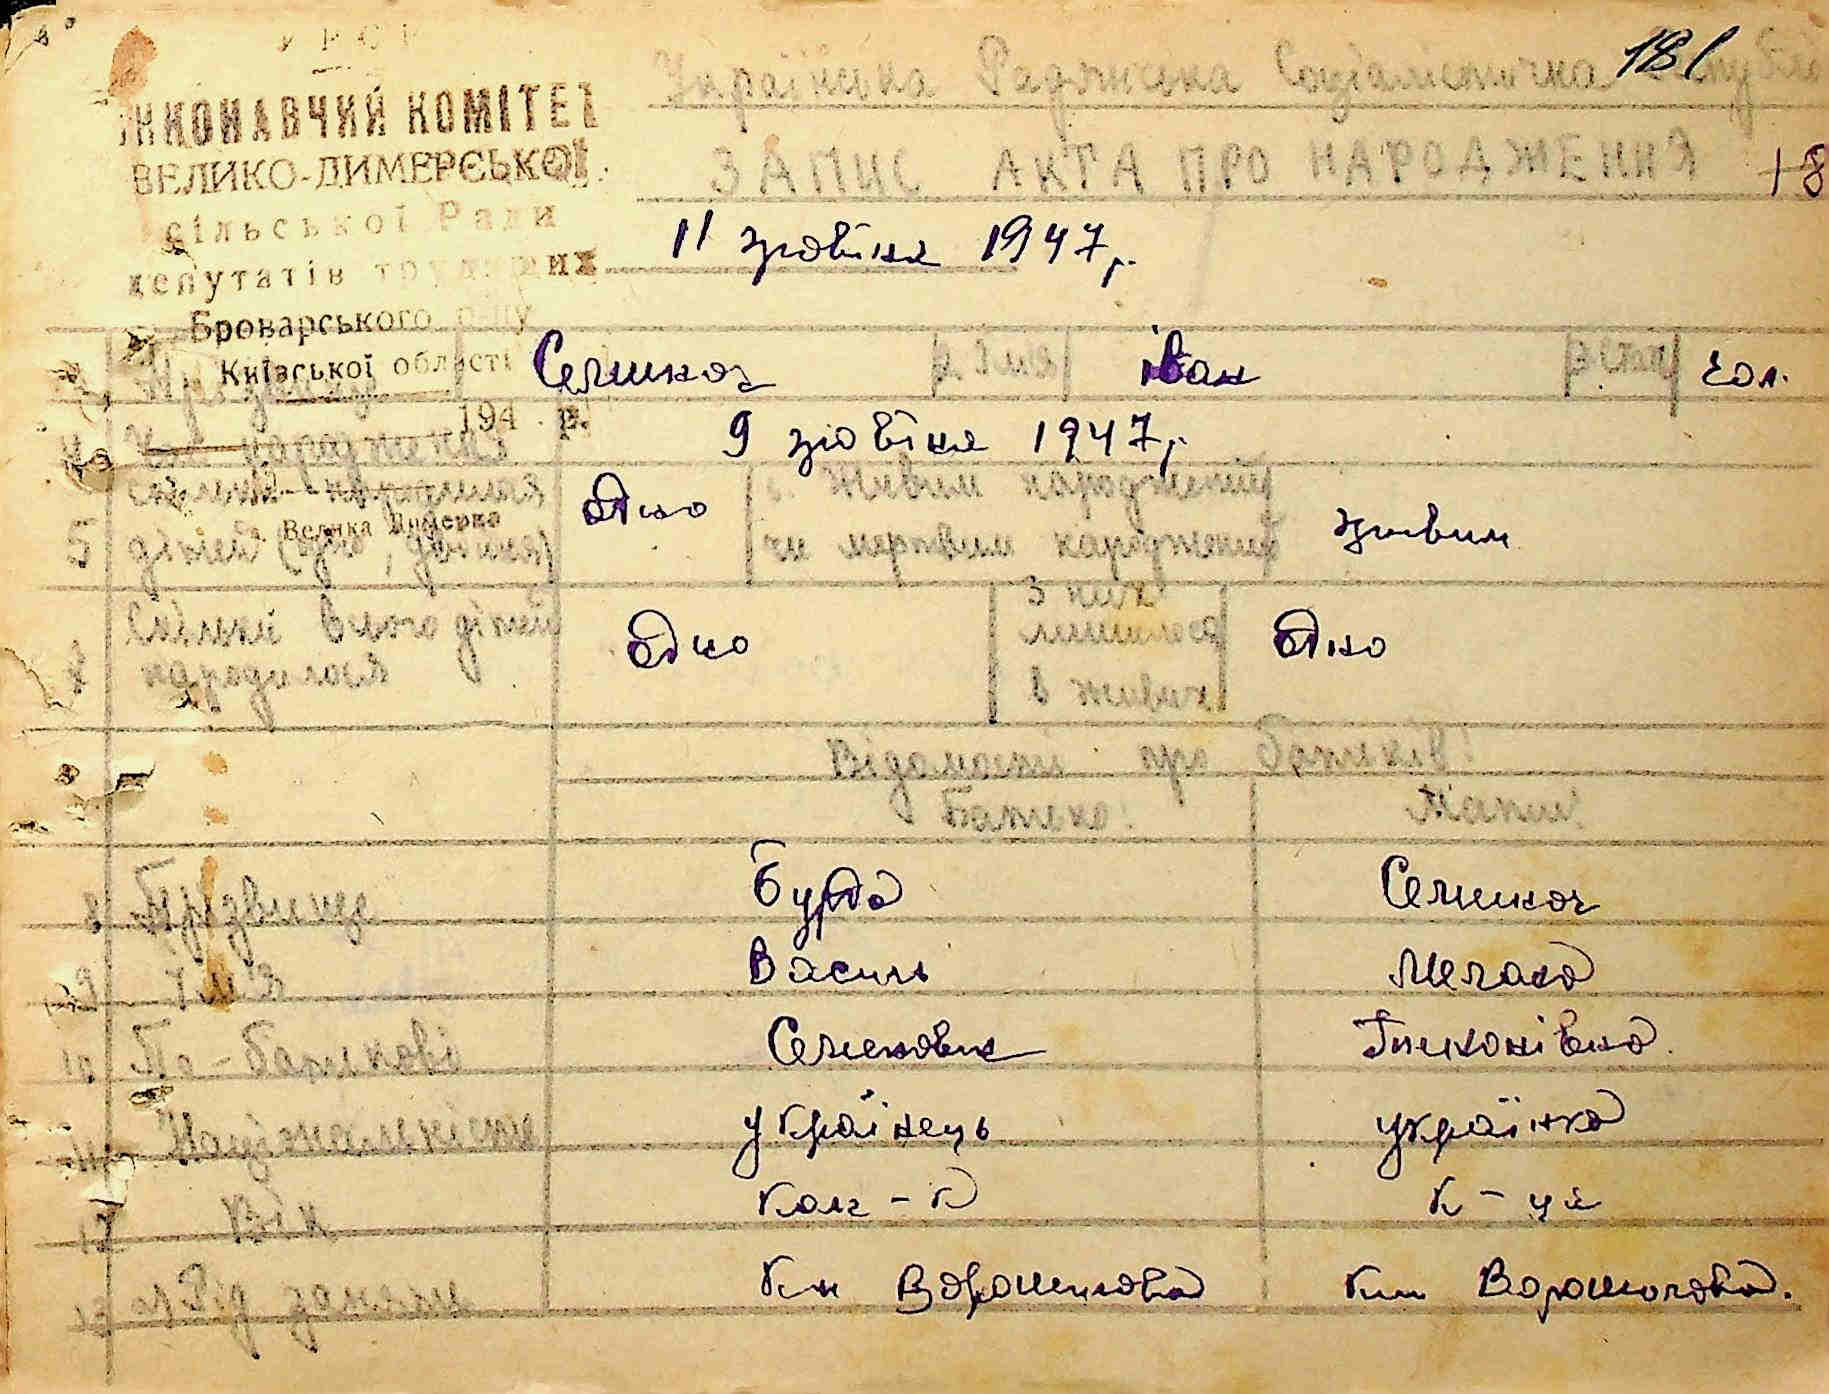 УРСР
ВИКОНАВЧИЙ КОМІТЕТ
ВЕЛИКО-ДИМЕРСЬКОЇ
сільської Ради
депутатів трудящих
Броварського р-ну
Київської області
194 р.
с. Велика Димерка
181
Українська Радянська Соціалістична Республі
ЗАПИС АКТА ПРО НАРОДЖЕННЯ 18
11 жовтня 1947 р.
Прізвище Семикоз 2. Імя Іван 3 стать чол.
4 Час народження 9 жовтня 1947 р.
5 Скільки народилося дітей (одно, двійня) одно 6. Живим народжений чи мертвим народжений живим
7 Скільки всього дітей народилося одно З них лишилося в живих одно
Відомості про батьків:
Батько: Мати:
8 Прізвище Бурда Семикоз
9 Імя Василь Мелана
10 По-батькові Семенович Тихонівна
11 Національність українець українка
12 Вік колг-к к-ця
13 к-п Ворошилова к-п Ворошилова.